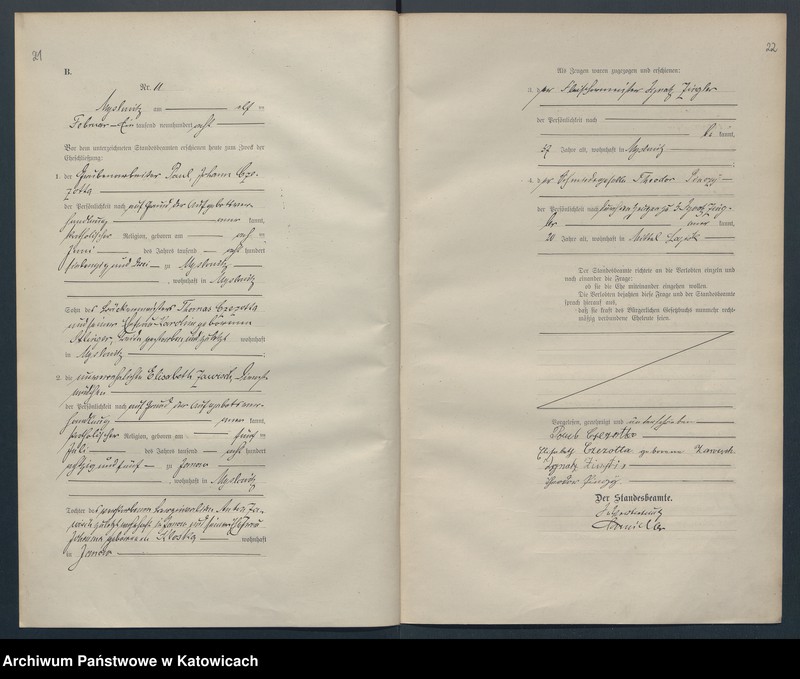 21
B.
Nr. 11
Myslowitz am elf ten
Februar Ein tausend neunhundert acht
Vor dem unterzeichneten Standesbeamten erschienen heute zum Zweck der
Eheschließung:
1. der Grubenarbeiter Paul Johann Czo-
zotta
der Persönlichkeit nach auf Grund der Aufgebotsver-
handlung kannt,
katholischer Religion, geboren am
Juni des Jahres tausend acht hundert
siebenzig und drei zu Myslowitz
, wohnhaft in Myslowitz
Sohn des Thomas Czezotta
und seiner Karoline geborenen
wohnhaft
in Myslowitz ;
2. die unverehelichte Elisabeth Zawiosk, Dienst-
mädchen
der Persönlichkeit nach auf Grund der Aufgebotsver-
handlung kannt,
katholischer Religion, geboren am fünf ten
Juli des Jahres tausend acht hundert
achtzig und fünf zu Janow
, wohnhaft in Myslowitz
Tochter des verstorbenen Anton Za-
Janow und seiner Ehefrau
Johanna geborenen wohnhaft
in Janow
22
Als Zeugen waren zugezogen und erschienen:
3. der Fleischermeister Ignatz Ziegler
der Persönlichkeit nach
be kannt,
57 Jahre alt, wohnhaft in Myslowitz
;
4. der Schmiedegeselle Theodor
der Persönlichkeit nach durch den Zeugen zu 3 Ignatz Zieg-
ler kannt,
20 Jahre alt, wohnhaft in Mittel Lazisk
Der Standesbeamte richtete an die Verlobten einzeln und
nach einander die Frage:
ob sie die Ehe miteinander eingehen wollen.
Die Verlobten bejahten diese Frage und der Standesbeamte
sprach hierauf aus,
daß sie kraft des Bürgerlichen Gesetzbuchs nunmehr recht-
mäßig verbundene Eheleute seien.
Vorgelesen, genehmigt und unterschrieben
Paul Czezotta
Elisabeth Czezotta geborene Zawiosk
Ignatz Ziegler
Theodor
Der Standesbeamte.
In Vertretung
Archiwum Państwowe w Katowicach